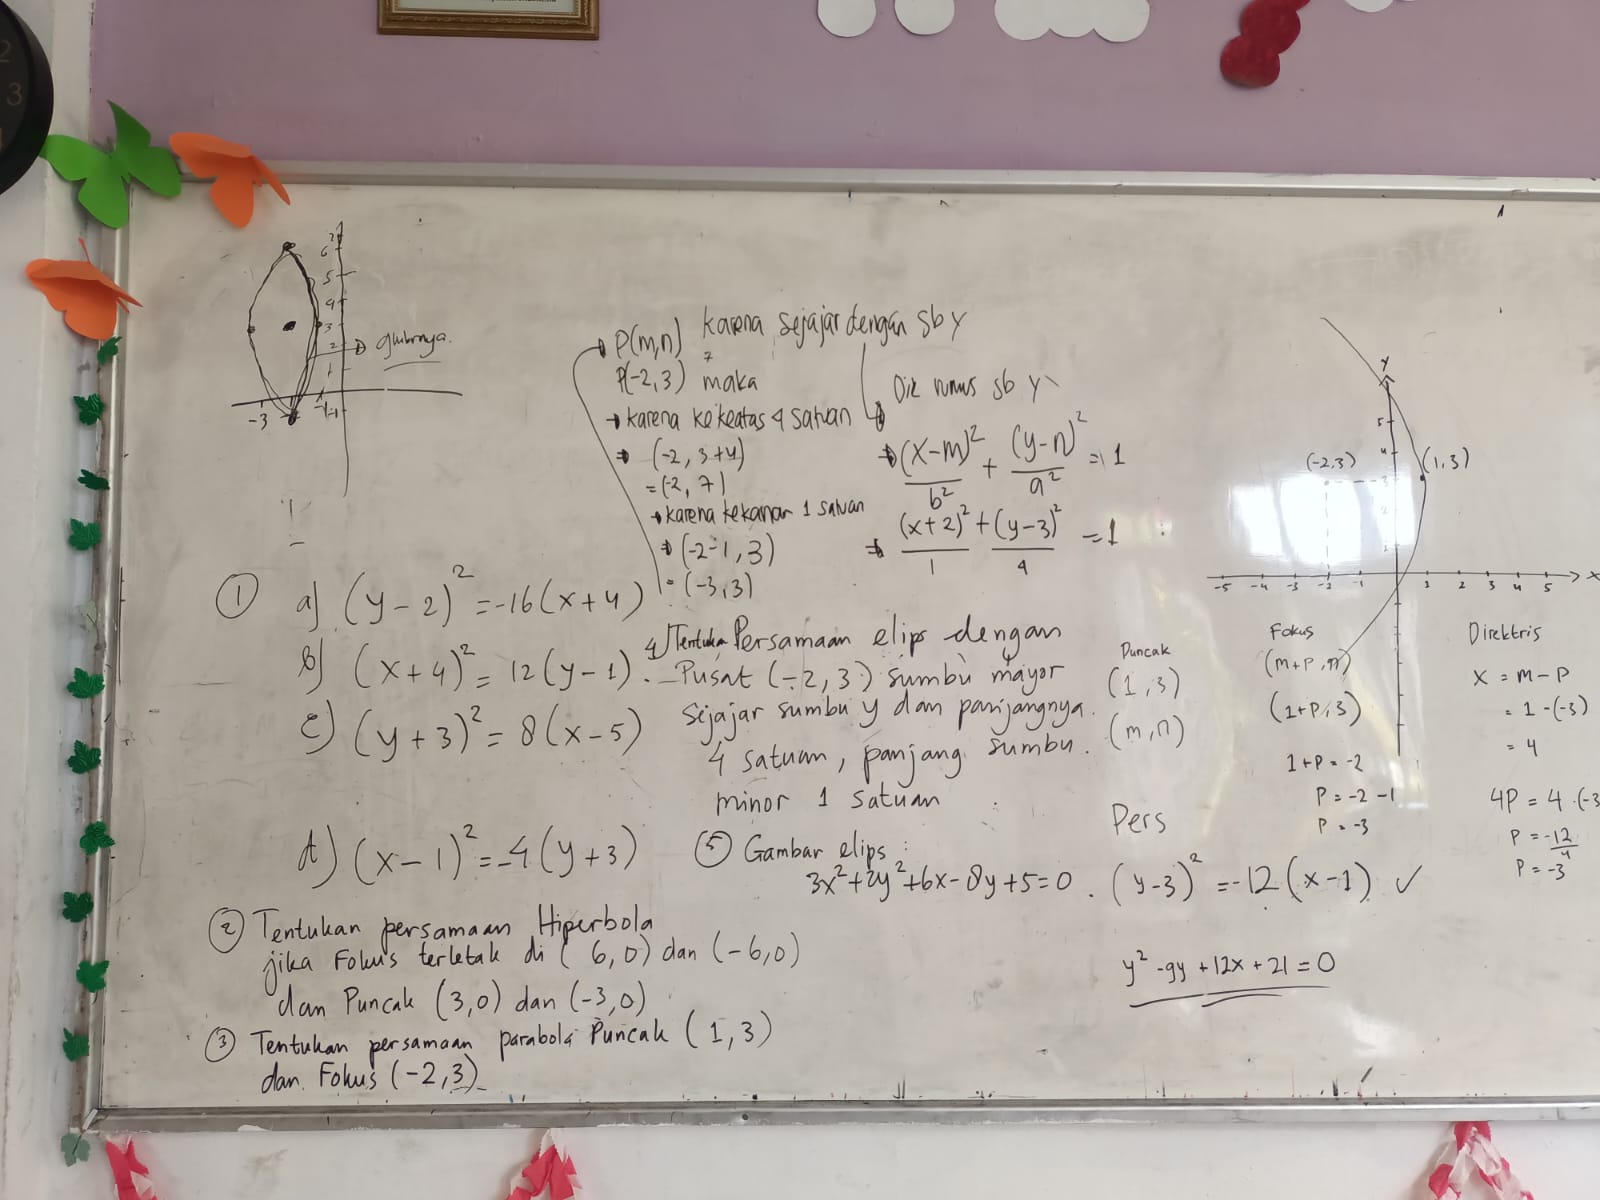 6
5
4
3
2
1
-3
-1
gambarnya.
P(m,n) karena sejajar dengan sb y
P(-2,3) maka
→ karena ke keatas 4 satuan
⇒ (-2, 3+4)
= (-2, 7)
→ karena kekanan 1 satuan
⇒ (-2-1, 3)
= (-3,3)
Dik rumus sb y
⇒ (x-m)²/b² + (y-n)²/a² = 1
⇒ (x+2)²/1 + (y-3)²/4 = 1
① a) (y-2)² = -16(x+4)
b) (x+4)² = 12(y-1).
c) (y+3)² = 8(x-5)
d) (x-1)² = -4(y+3)
② Tentukan persamaan Hiperbola
jika Fokus terletak di (6,0) dan (-6,0)
dan Puncak (3,0) dan (-3,0)
③ Tentukan persamaan parabola Puncak (1,3)
dan Fokus (-2,3)
4) Tentukan Persamaan elips dengan
Pusat (-2,3) sumbu mayor
sejajar sumbu y dan panjangnya.
4 satuan, panjang sumbu.
minor 1 satuan
⑤ Gambar elips :
3x²+2y²+6x-8y+5=0.
y
5
4
(-2,3)
3
(1,3)
2
-5 -4 -3 -2 -1 1 2 3 4 5 x
Puncak
(1,3)
(m,n)
Fokus
(m+p,n)
(1+p,3)
1+p = -2
p = -2-1
p = -3
Direktris
x = m-p
= 1-(-3)
= 4
4p = 4.(-3
p = -12/4
p = -3
Pers
(y-3)² = -12(x-1) ✓
y² -9y +12x +21 = 0